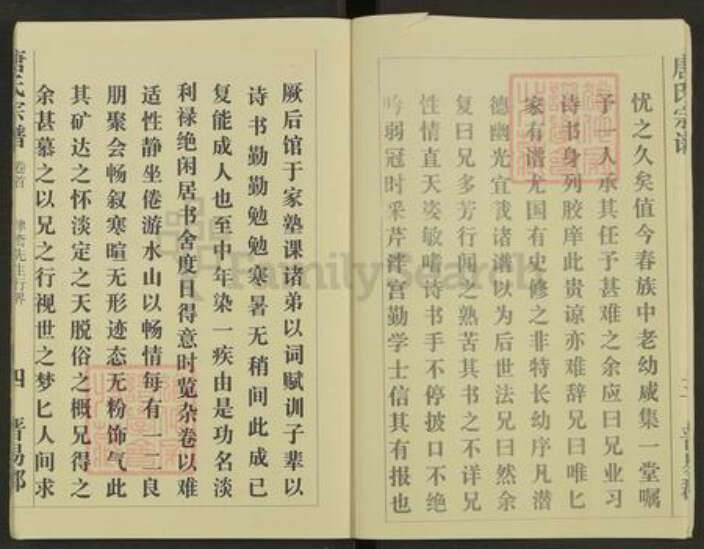 唐氏宗谱
三
忧之久矣值今春族中老幼咸集一堂嘱
予一人承其任予甚难之余应曰兄业习
诗书身列胶庠此贵谅亦难辞兄曰唯匕
家有谱尤国有史修之非特长幼序凡潜
德幽光宜我诸谱以为后世法兄曰然余
复曰兄多芳行闻之熟苦其书之不详兄
性情直天姿敏嗜诗书手不停披口不绝
吟弱冠时采芹泮宫勤学士信其有报也
厥后馆于家塾课诸弟以词赋训子辈以
诗书勤勤勉勉寒暑无稍间此成已
复能成人也至中年染一疾由是功名淡
利禄绝闲居书舍度日得意时览杂卷以难
适性静坐倦游水山以畅情每有一二良
朋聚会畅叙寒暄无形迹态无粉饰气此
其矿达之怀淡定之天脱俗之概兄得之
余甚慕之以兄之行视世之梦匕人间求
唐氏宗谱 卷首 先生行畧 四 晋昜郡
FamilySearch